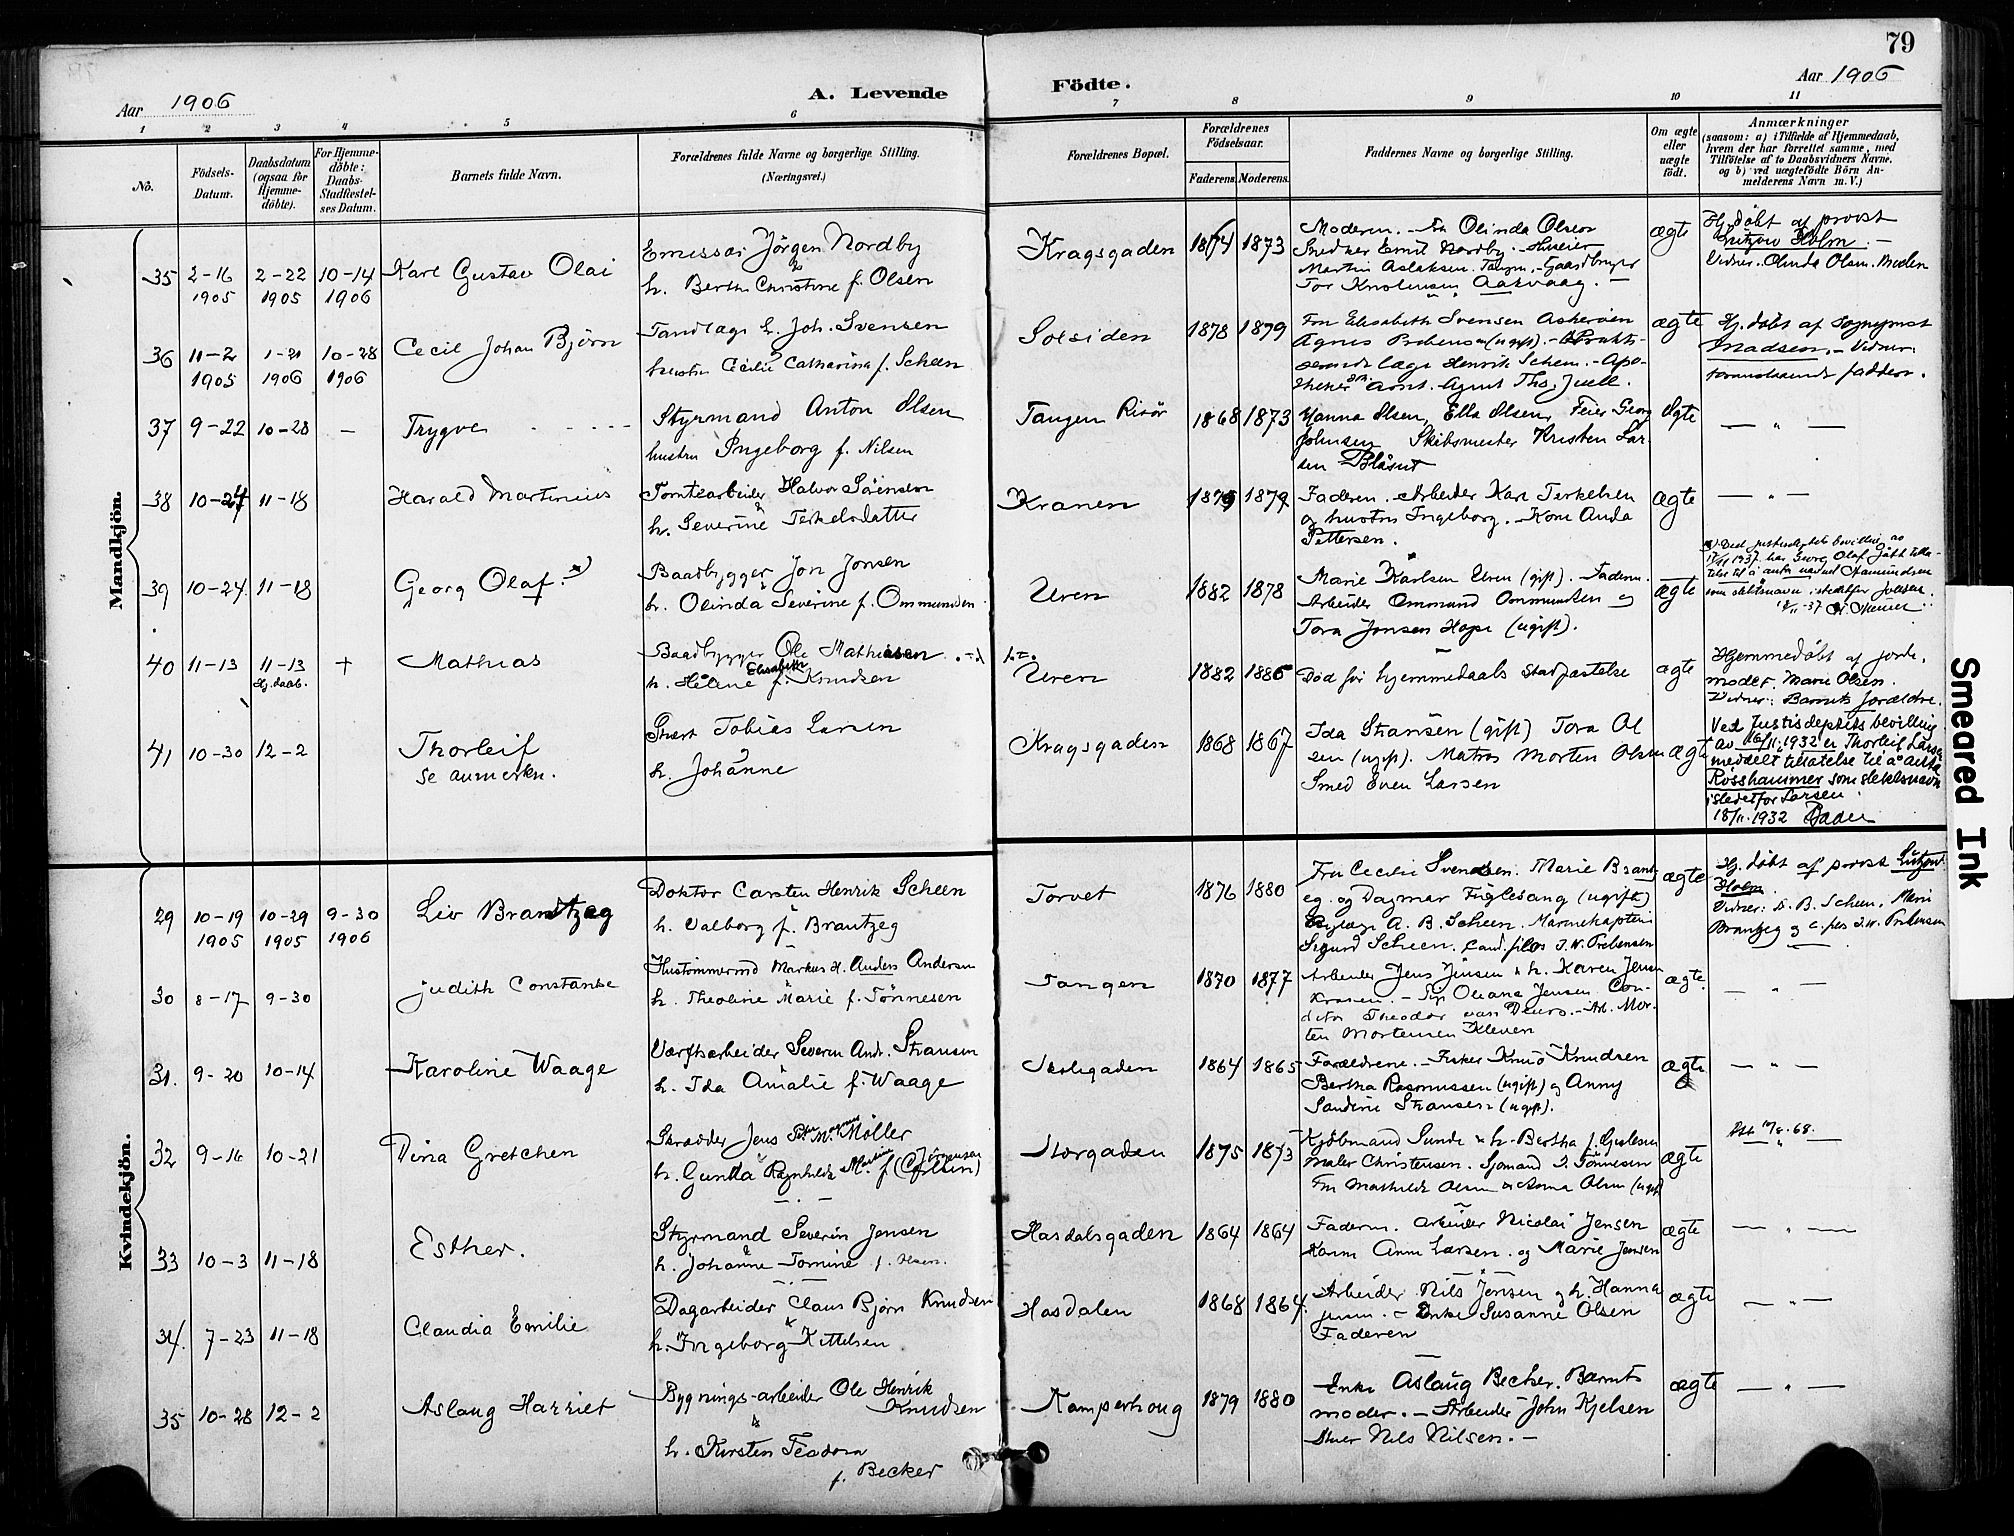 79
Aar 1906
A. Levende
Födte.
Aar 1906
1 2 3 4 5 6 7 8 9 10 11
No.
Födsels-Datum.
Daabsdatum (ogsaa for Hjemme-döbte).
For Hjemme-döbte: Daabs-Stadfæstel-ses Datum.
Barnets fulde Navn.
Forældrenes fulde Navne og borgerlige Stilling.
(Næringsvei.)
Forældrenes Bopæl.
Forældrenes Födselsaar.
Faderens. Moderens.
Faddernes Navne og borgerlige Stilling.
Om ægte eller uægte födt.
Anmærkninger
(saasom: a) i Tilfælde af Hjemmedaab, hvem der har forrettet samme, med Tilföielse af to Daabsvidners Navne, og b) ved uægtefödte Börn Anmelderens Navn m. V.)
Mandkjön.
35 2-16 1905 2-22 1905 10-14 1906 Karl Gustav Olai
Emissær Jörgen Nordby
h. Berthe Christine f. Olsen
Kragsgaden 1874 1873
Moderen. - Olinda Olsen
Snedker Emil Nordby.
Martin Aslaksen Tangen. - Gaardbruger
Tor Knutsen Aarvaag. -
ægte
Hj.döbt af provst
Lützow Holm. -
Vidner. Olinda Olsen. Moderen
36 11-2 1905 1-21 1906 10-28 1906 Cecil Johan Björn
Tandlæge h. Joh. Svensen
hustru Cecilie Catharina f. Scheen
Solsiden 1878 1879
Fru Elisabeth Svensen
Agnes Prebensen (ugift).
læge Henrik Scheen. - Apo-
theker Agent Ths. Juell.
ægte
Hj. döbt af Sogneprest
Madsen. - Vidner:
foranstaaende faddere.
37 9-22 10-28 - Trygve
Styrmand Anton Olsen
hustru Ingeborg f. Nilsen
Tangen Risör 1868 1873
Hanna Olsen, Ella Olsen, Feier Georg
Johnsen Skibsmester Kristen Lar-
sen Blåsut
Ægte
— " —
38 10-24 11-18 Harald Martinius
Tomtearbeider Halvor Sörensen
h. Severine Terkelsdatter
Kranen 1875 1879
Faderen. Arbeider Karl Terkelsen
og hustru Ingeborg. - Kone Anda
Pettersen.
ægte
— " —
39 10-24 11-18 Georg Olaf.
Baadbygger Jon Jonsen
h. Olinda Severine f. Ommundsen
Uren 1882 1878
Marie Karlsen Uren (gift). Faderen.
Arbeider Ommund Ommundsen og
Tora Jonsen Hope (ugift).
ægte
Ved justisdep.tets bevilling av
17/11 1937 har Georg Olaf fått tilla-
telse til å anta navnet Aamundsen
som slektsnavn istedetfor Jonsen.
40 11-13 11-13 Hj. daab. + Mathias
Baadbygger Ole Mathiasen
h. Helene Elisabeth f. Knudsen
Uren 1882 1886
Död för hjemmedaabs stadfæstelse
ægte
Hjemmedöbt af jorde-
moder. Marie Olsen.
Vidner: Barnets forældre.
41 10-30 12-2 Thorleif
se anmerkn.
Tobias Larsen
h. Johanne
Kragsgaden 1868 1867
Ida Stransen (gift) Tora Ol
sen (ugift). Matros Morten Olsen
Smed Even Larsen
ægte
Ved Justisdep.tets bevilling
av 16/11.1932 er Thorleif Larsen
meddelt tillatelse til å anta
Rosshammer som slektsnavn
istedetfor Larsen
18/11.1932
Kvindekjön.
29 10-19 1905 10-29 1905 9-30 1906 Liv Brantzeg
Doktor Carsten Henrik Scheen
h. Valborg f. Brantzeg
Torvet 1876 1880
Fru Cecilie Svendsen. Marie Brantz
eg. og Dagmar Fuglesang (ugifte)
A. B. Scheen. Marinekaptein
Sigurd Scheen. Cand. filos J. W. Prebensen
ægte
Hj. döbt af provst Lützow
Holm.
Vidner: A. B. Scheen, Marie
Brantzeg og c. filos J. W. Prebensen
30 8-17 9-30 Judith Constanse
Hustömmermd Markus H. Anders Andersen
h. Theoline Marie f. Tönnesen
Tangen 1870 1877
Arbeider Jens Jensen & h. Karen Jensen
Kranen. - Oleana Jensen. Con-
ditor Theodor van Deurs. - Arb. Mor-
ten Mortensen Kleven
ægte.
— " —
31. 9-20 10-14 Karoline Waage
Værftsarbeider Severin Andr. Stransen
h. Ida Amalie f. Waage
Skolegaden 1864 1865
Forældrene. - Fisker Knud Knudsen
Bertha Rasmussen (ugift) og Anny
Sandine Stransen (ugift).
ægte
— " —
32 9-16 10-21 Dina Gretchen
Skrædder Jens Peter M. Möller
h. Gunda Ragnhilde Martine f. Jörgensen
Storgaden 1875 1873
Kjöbmand Sunde & h. Bertha f.
Maler Christensen. Sjömand J. Tönnesen
Fru Mathilde Olsen & Anna Olsen (ugift)
ægte
33 10-3 11-18 Esther.
Styrmand Severin Jensen
h. Johanne Tomine f. Olsen.
Hasdalsgaden 1864 1864
Faderen. Arbeider Nicolai Jensen
Karen Anne Larsen. og Marie Jensen
ægte
— " —
34. 7-23 11-18 Claudia Emilie
Dagarbeider Claus Bjørn Knudsen
h. Ingeborg Kittelsen
Hasdalen 1868 1864.
Arbeider Nils Jensen og h. Hanna
Jensen. - Enke Susanne Olsen
Faderen
ægte
— " —
35 10-28 12-2 Aslaug Harriet
Bygnings-arbeider Ole Henrik
Knudsen
h. Kirsten Teodora
f. Becker
Kamperhaug 1879 1880
Enke Aslaug Becker. Barnets
moder. - Arbeider John Kjelsen
Nils Nilsen. -
ægte
— " —
Smeared Ink